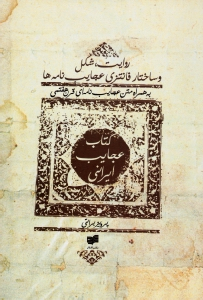 روایت، شکل
و ساختار فانتزی عجایب نامه ها
به همراه متن عجایب نامه‌ای قرن هفتمی
کتاب
عجایب
ایرانی
پرویز براتی